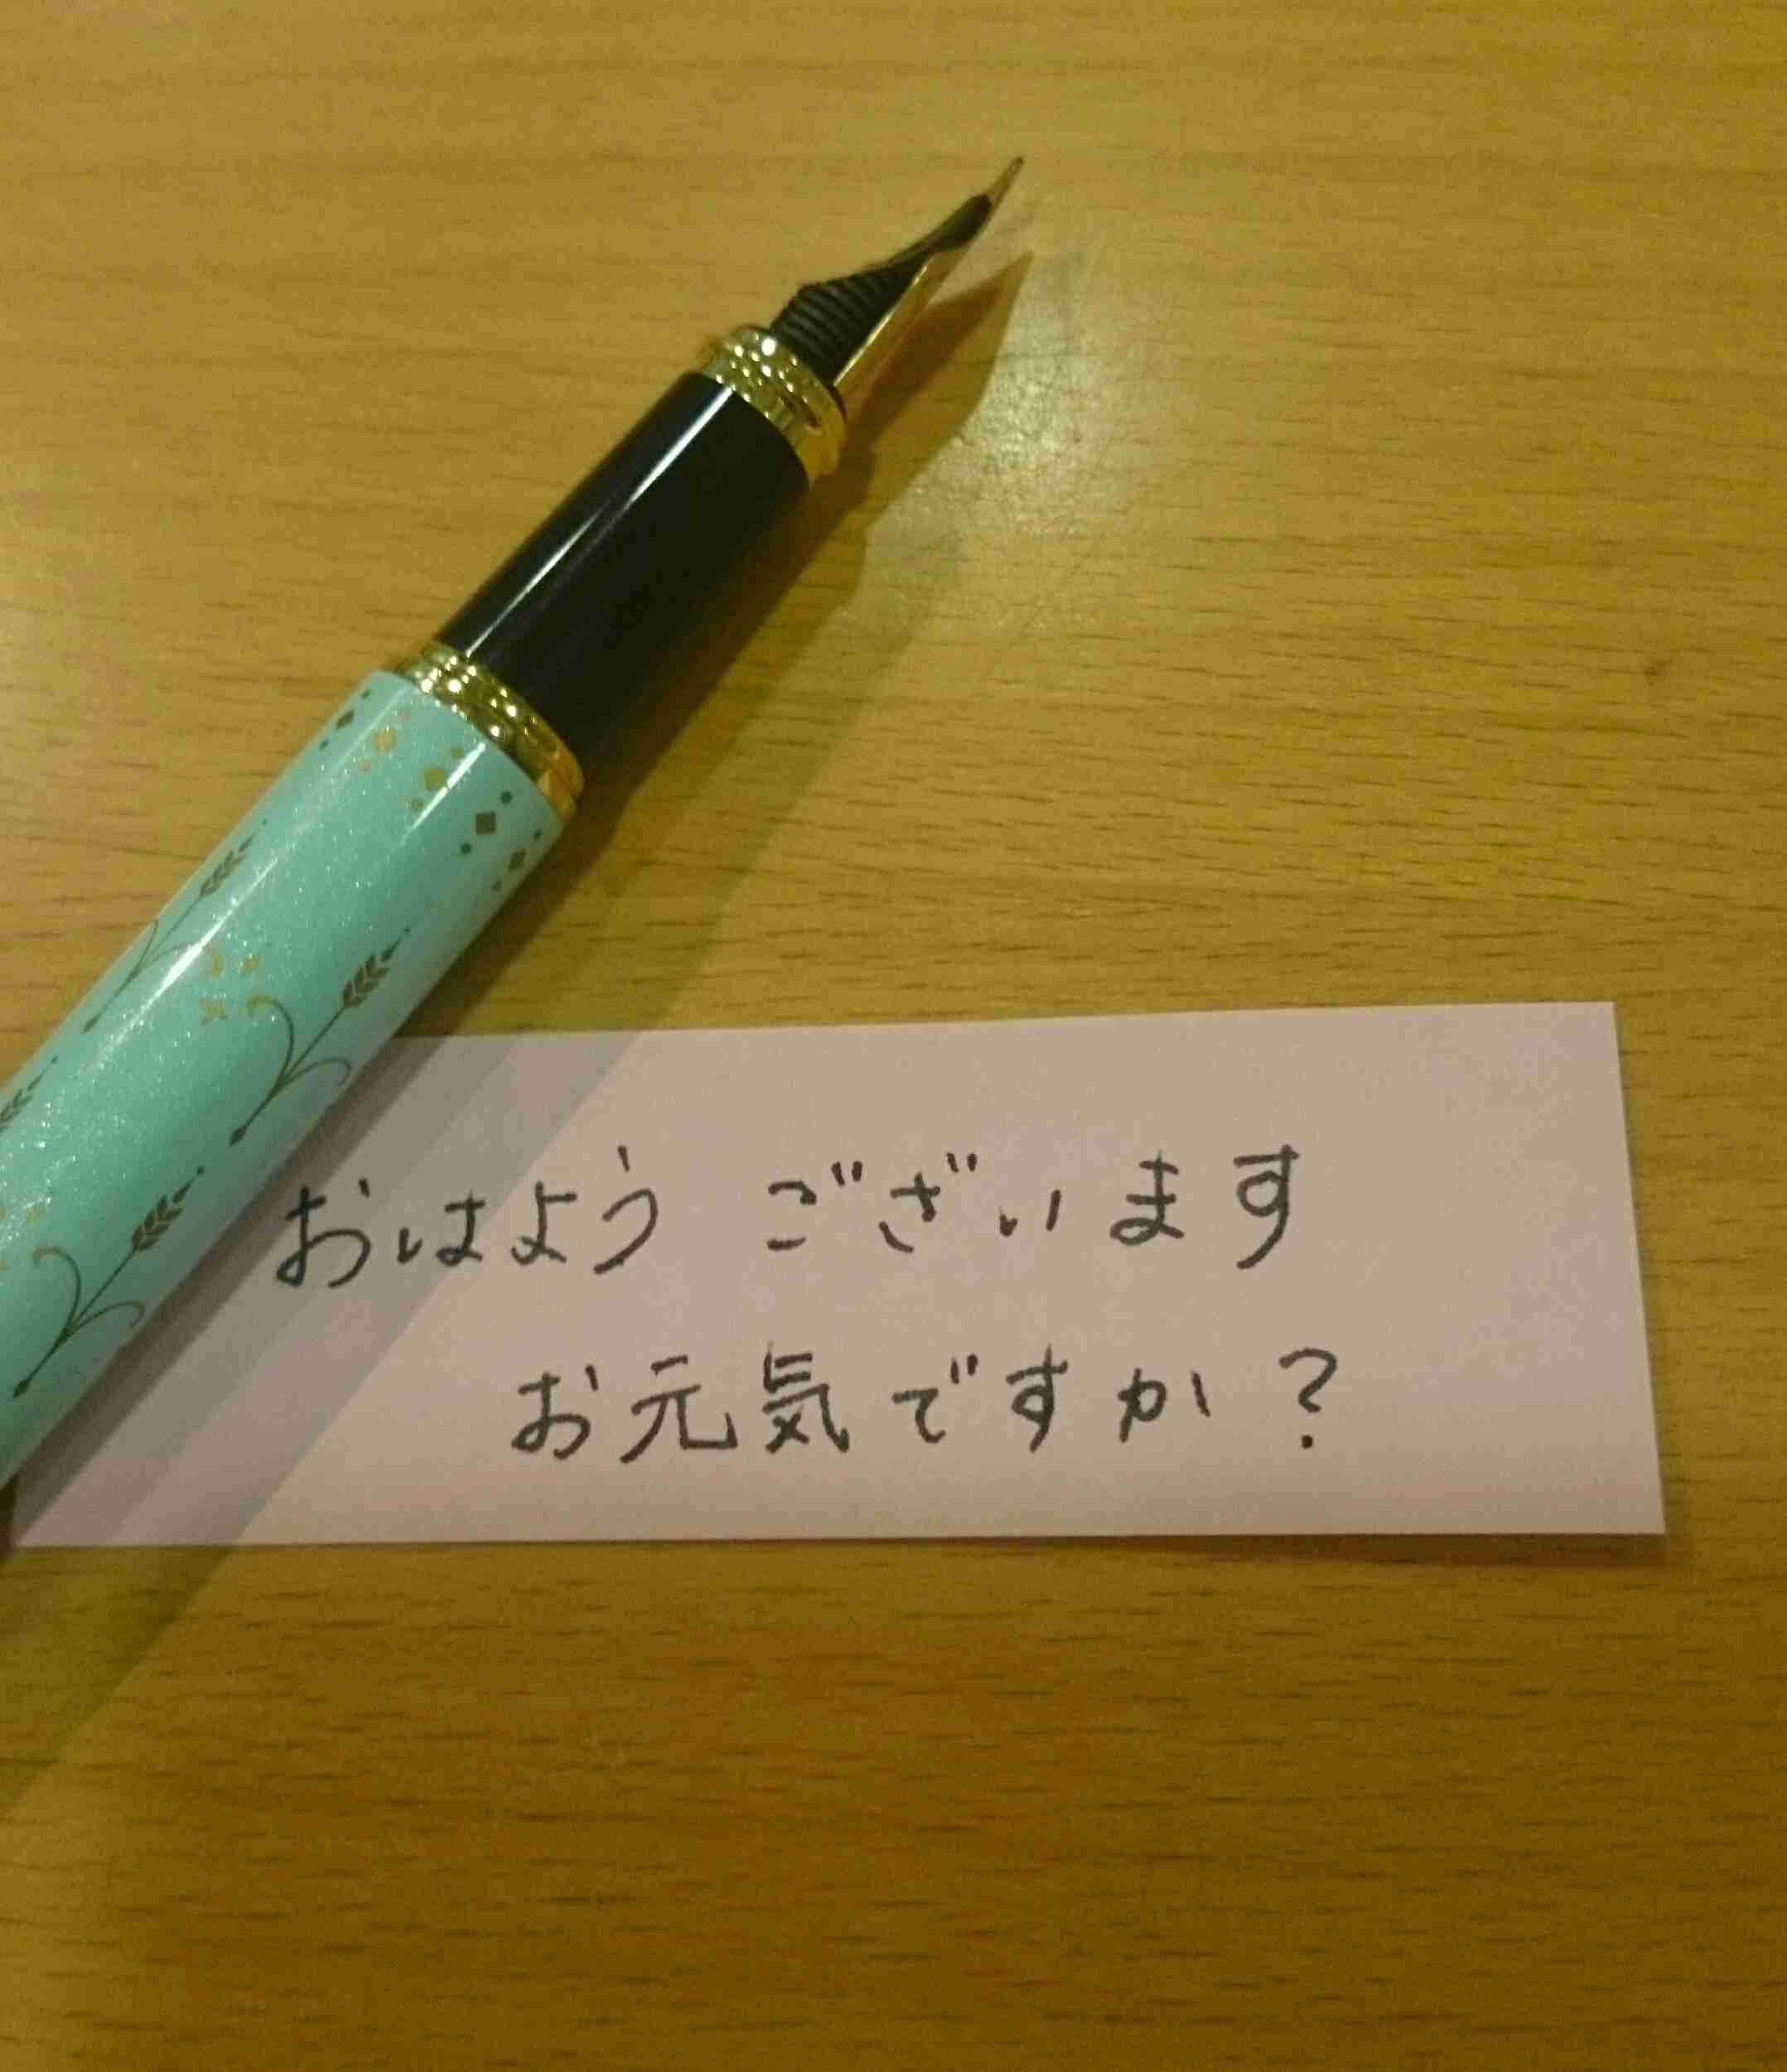 おはよう ございます
お元気ですか?